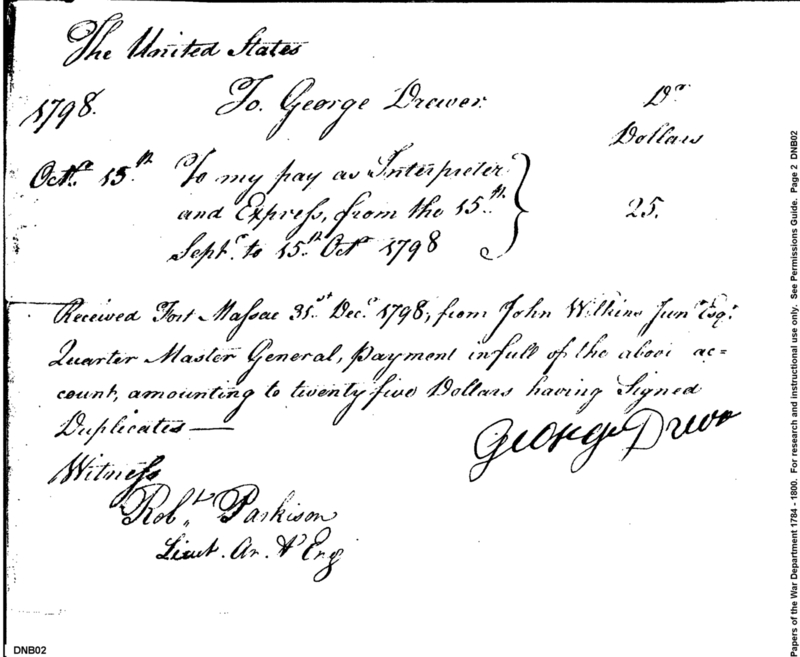 The United States
1798. To George Drewer. Dr
Dollars
Octr. 15th. To my pay as Interpreter
and Express, from the 15th. 25.
Septr. to 15th Octr 1798
Received Fort Massac 31st Decr. 1798, from John Wilkins Junr Esqr.
Quarter Master General, payment in full of the above ac=
count, amounting to twenty five Dollars having Signed
Duplicates —
George Drewr
Witness
Robt. Parkison
Lieut. Ar. & Eng
DNB02
Papers of the War Department 1784 - 1800. For research and instructional use only. See Permissions Guide. Page 2 DNB02